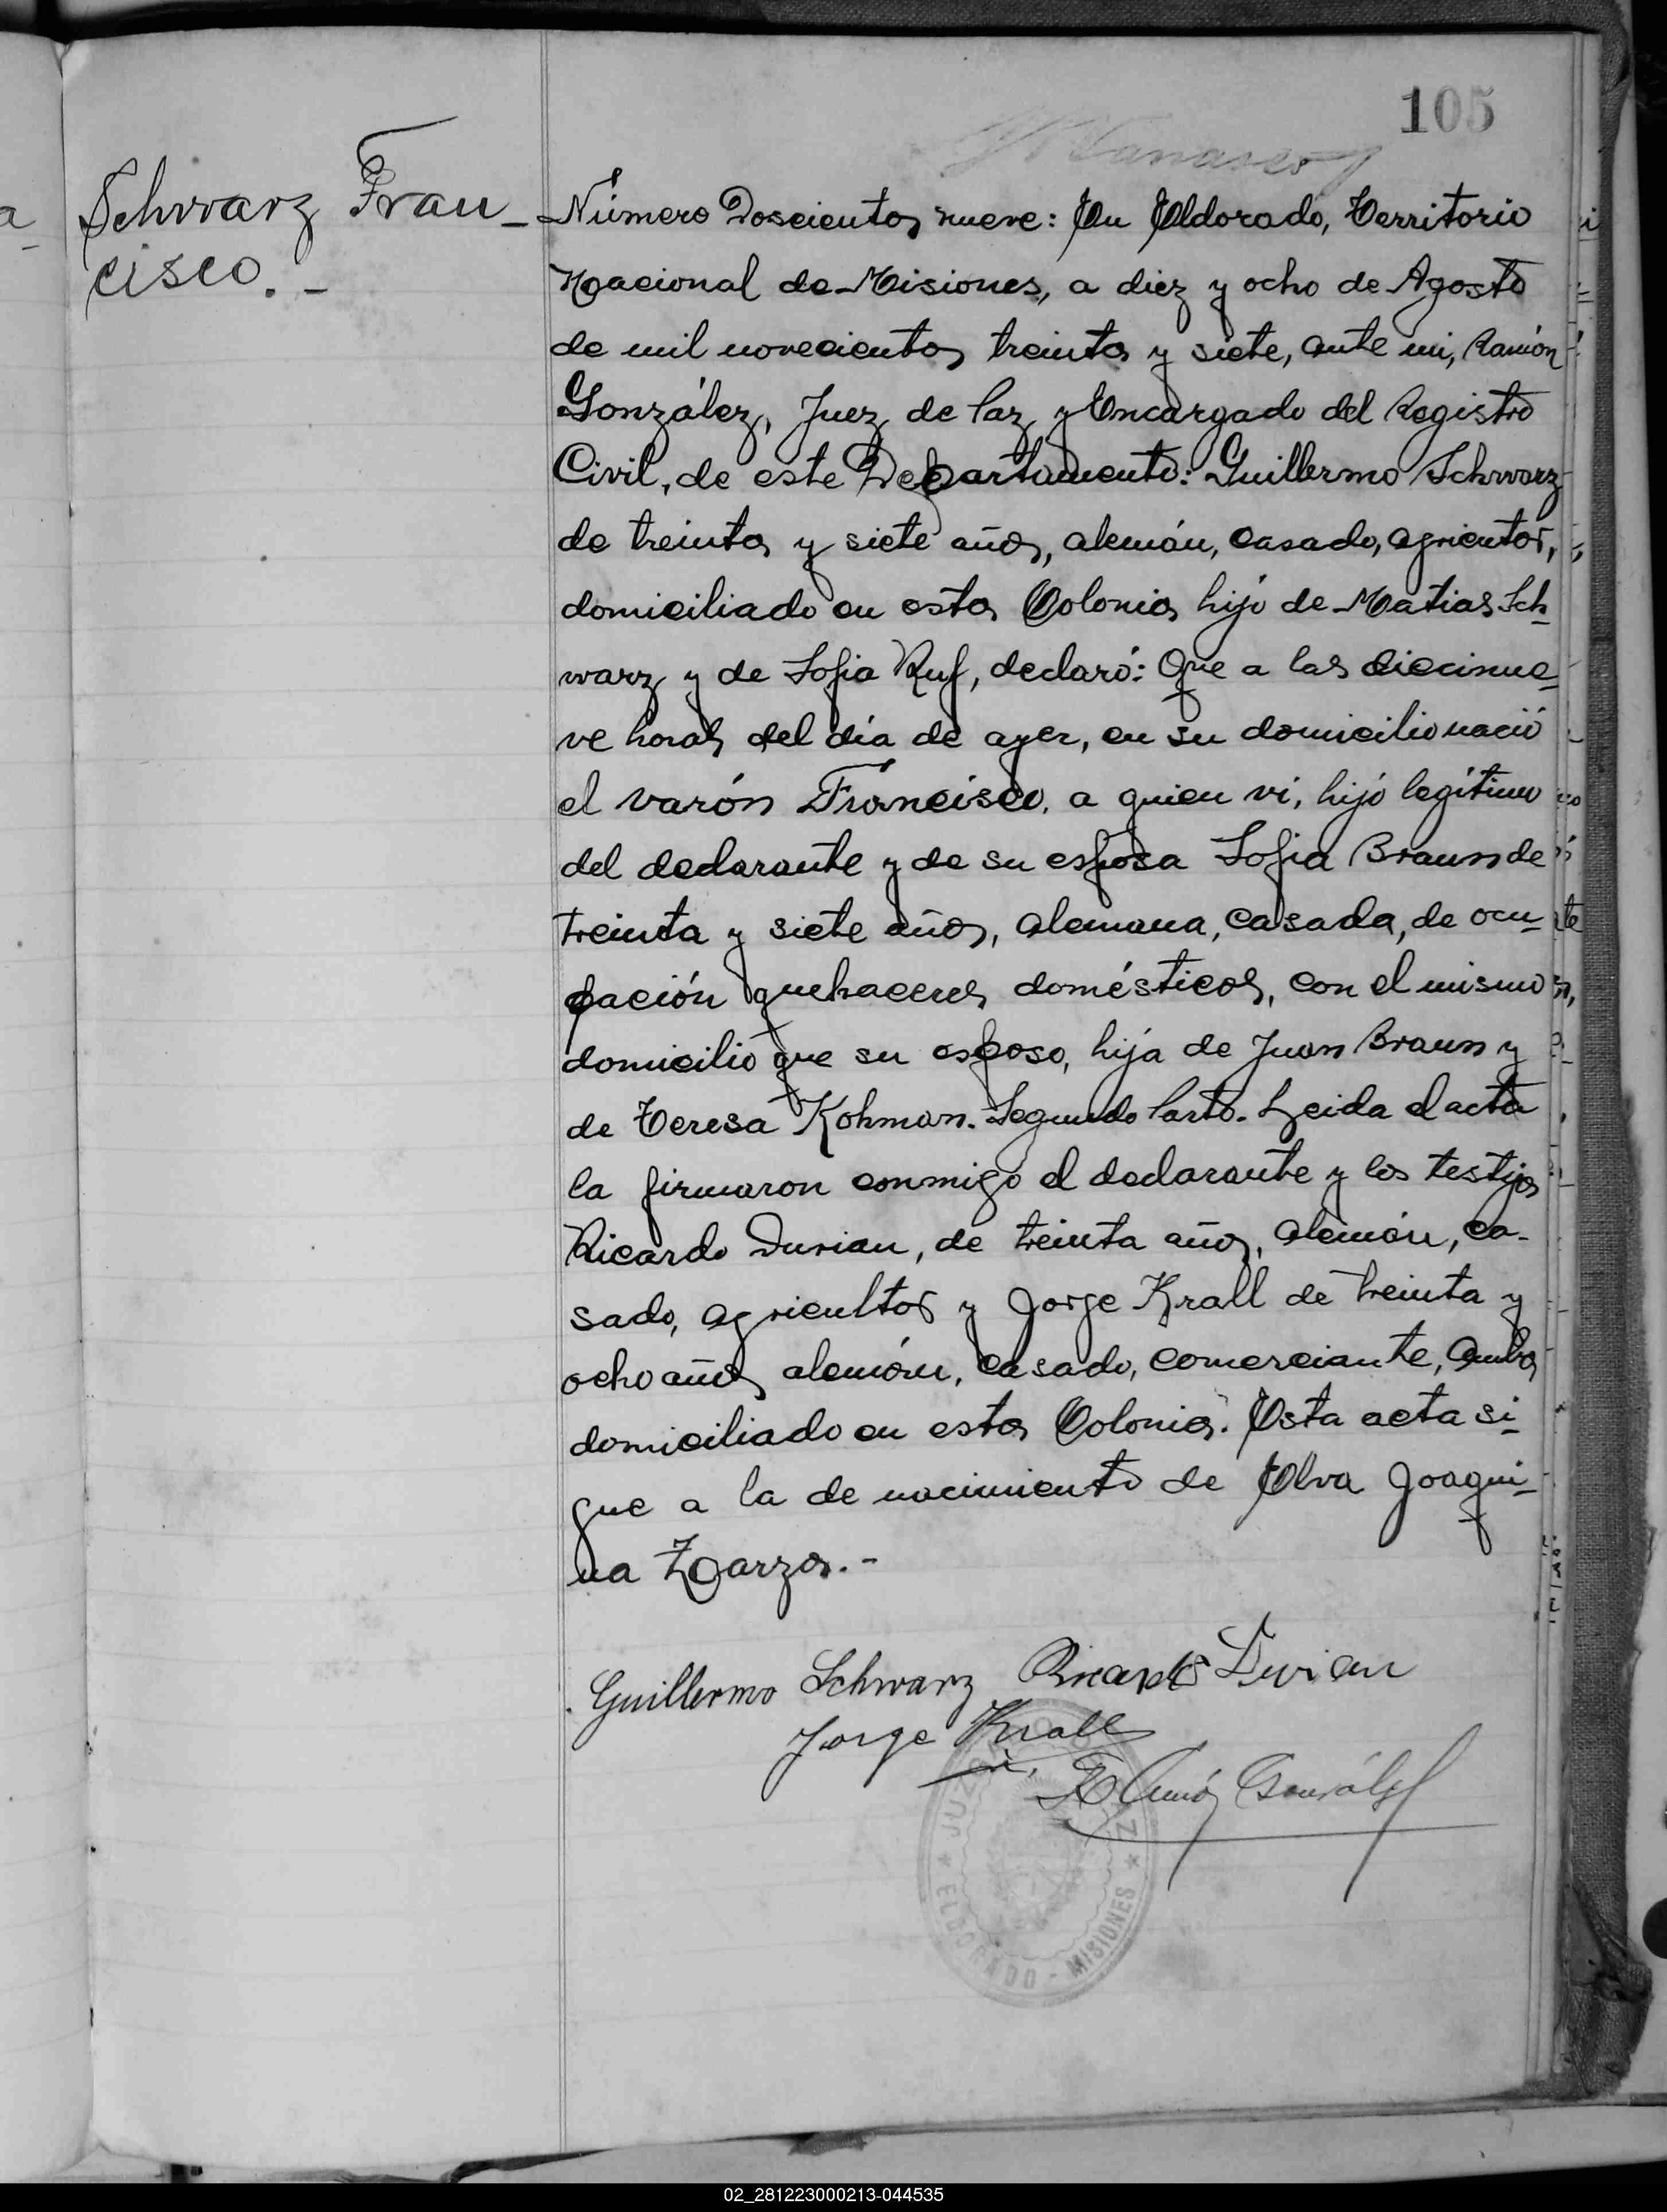 105
Schwarz Fran-
cisco.-
Número Doscientos nueve: En Eldorado, Territorio
Nacional de Misiones, a diez y ocho de Agosto
de mil novecientos treinta y siete, ante mi, Ramón
González, Juez de Paz y Encargado del Registro
Civil, de este Departamento: Guillermo Schwarz
de treinta y siete años, alemán, casado, agricultor,
domiciliado en esta Colonia, hijo de Matias Sch-
warz y de Sofia Ruf, declaró: Que a las diecinue-
ve horas del día de ayer, en su domicilio nació
el varón Francisco, a quien vi, hijo legítimo
del declarante y de su esposa Sofia Braun de
treinta y siete años, alemana, casada, de ocu-
pación quehaceres domésticos, con el mismo
domicilio que su esposo, hija de Juan Braun y
de Teresa Kohman. Segundo Parto. Leida el acta
la firmaron conmigo el declarante y los testigos
Ricardo Durian, de treinta años, alemán, ca-
sado, agricultor y Jorge Krall de treinta y
ocho años, alemán, casado, comerciante, ambos
domiciliado en esta Colonia. Esta acta si-
gue a la de nacimiento de Elva Joaqui-
na Zarza.-
Guillermo Schwarz Ricardo Durian
Jorge Krall
Ramón González
JUZGADO DE PAZ
ELDORADO - MISIONES
02_281223000213-044535